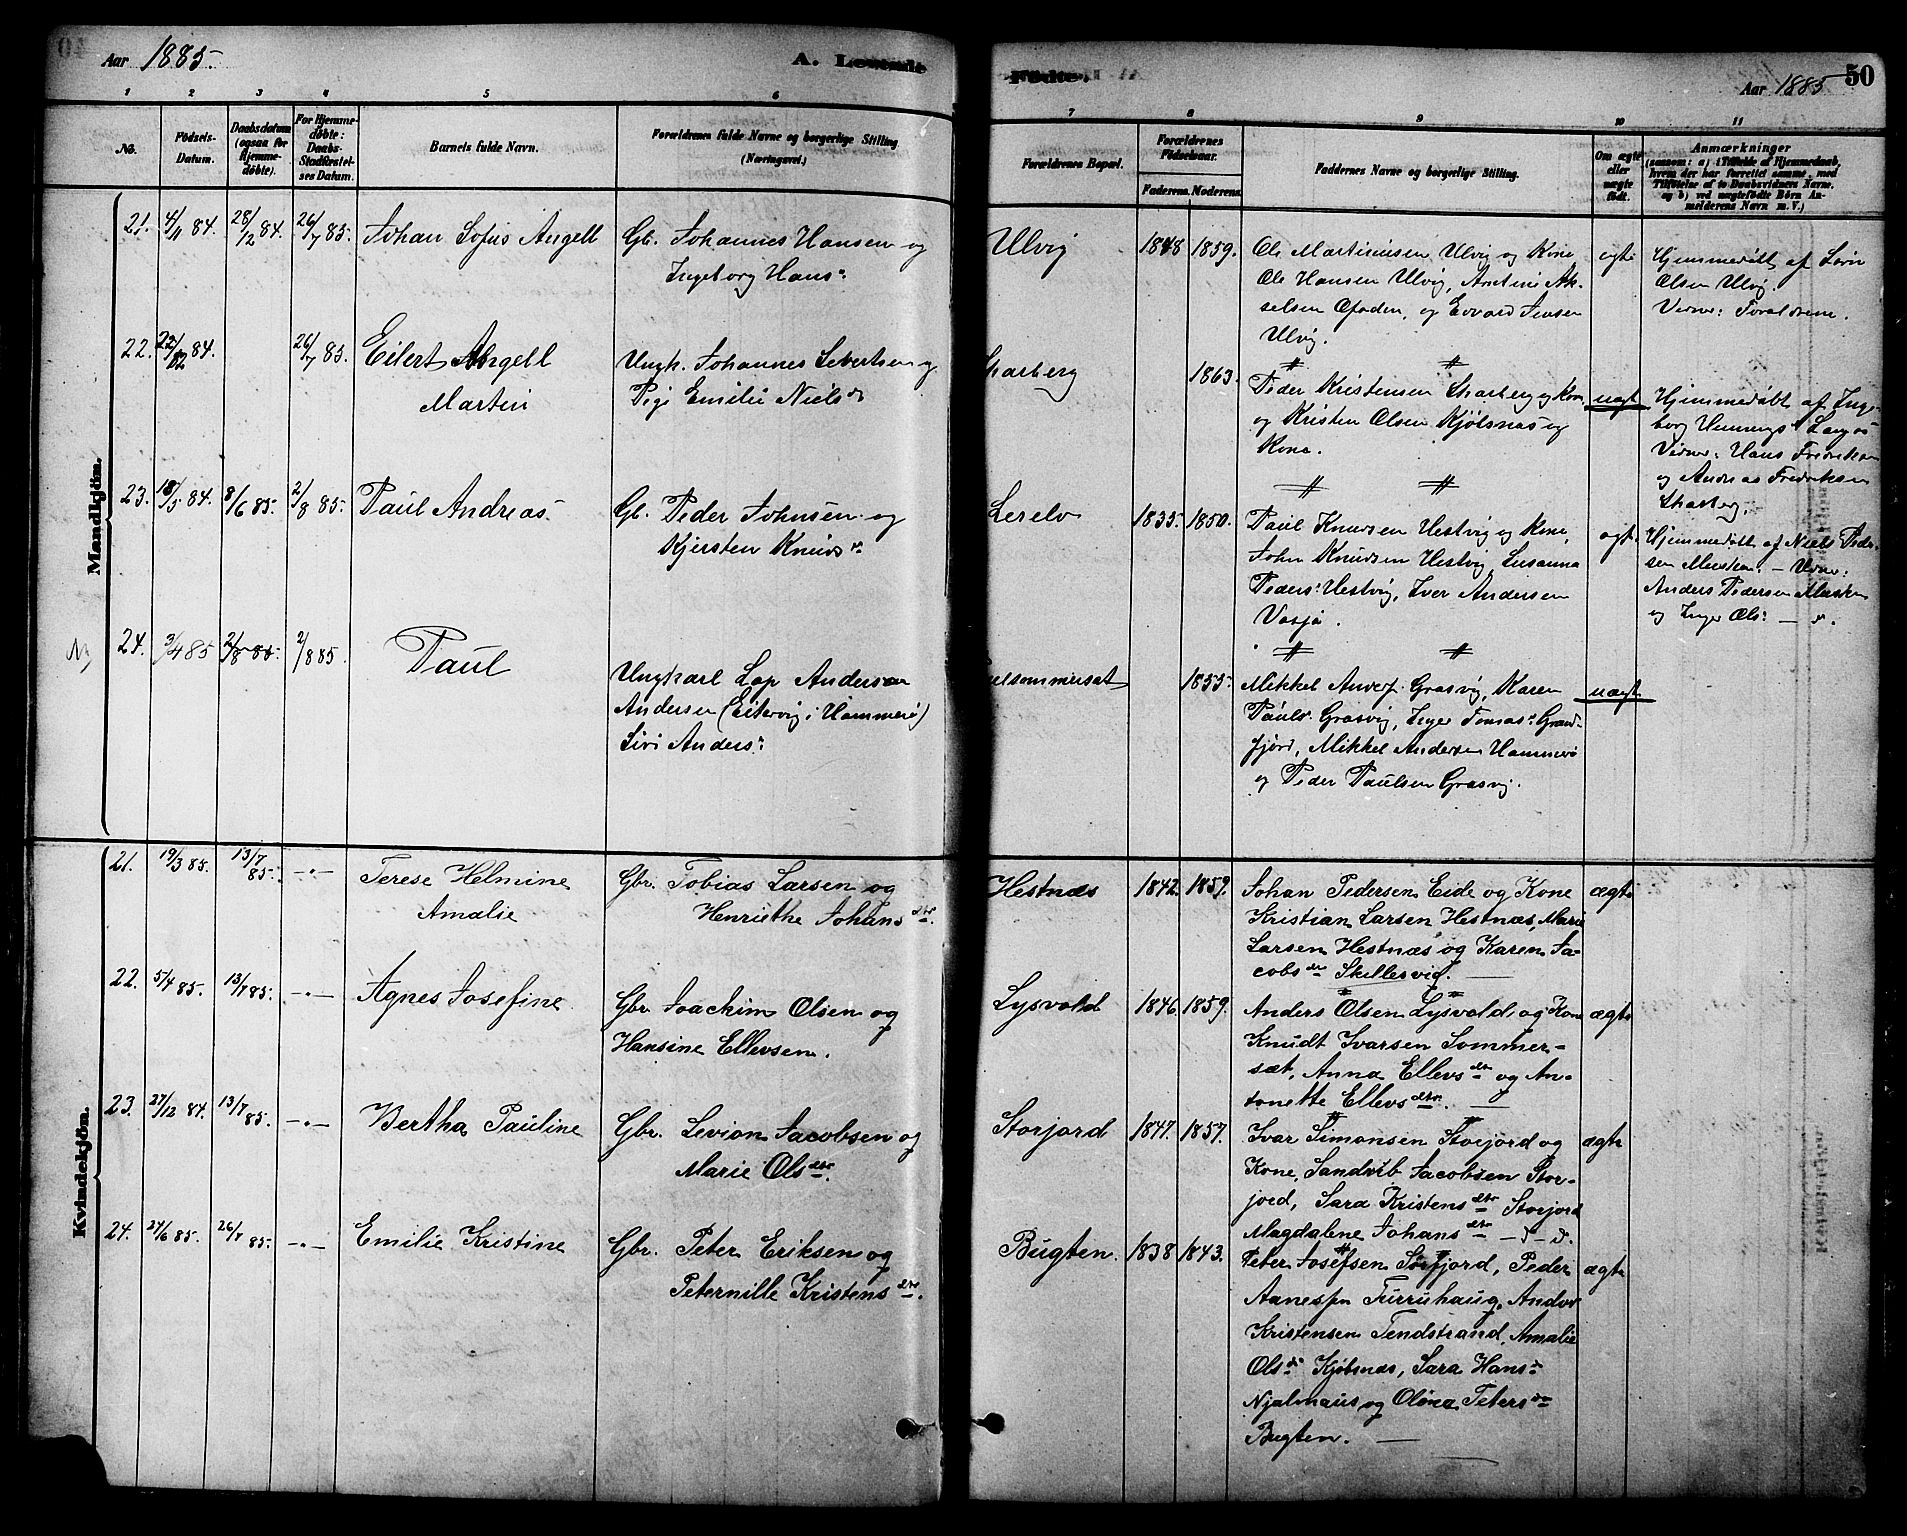 Aar 1885.
A. Levende
Fødte.
Aar 1885
50
1
2
3
4
5
6
7
8
9
10
11
No.
Fødsels-
Datum.
Daabsdatum
(ogsaa for
Hjemme-
døbte).
For Hjemme-
døbte:
Daabs-
Stadfæstel-
ses Datum.
Barnets fulde Navn.
Forældrenes fulde Navne og borgerlige Stilling
(Næringsvei.)
Forældrenes Bopæl.
Forældrenes
Fødselsaar.
Faderens. Moderens.
Faddernes Navne og borgerlige Stilling.
Om ægte
eller
uægte
født.
Anmærkninger
(saasom: a) i Tilfælde af Hjemmedaab,
hvem der har forrettet samme, med
Tilføielse af to Daabsvidners Navne,
og b) ved uægtefødte Børn An-
melderens Navn m. V.)
Mandkjøn.
21. 4/11 84. 28/12 84. 26/7 85. Johan Sofus Angell
Gb. Johannes Hansen og
Ingeborg Hans
Ulvig 1848 1859.
Ole Martinusen Ulvig og Kone
Ole Hansen Ulvig, Arntine Ak-
selsen Ofoden, og Edvard Jensen
Ulvig.
ægt.
Hjemmedøbt af
Olsen Ulvig.
Vidner: Forældrene.
22. 22/12 84. 26/7 85. Eilert Angell
Martin
Ungk. Johannes Sivertsen og
Pige Emilie Niels dr
Skarberg 1863.
Peder Kristensen Skarberg og Kone
og Kristen Olsen Kjøbsnæs og
Kone.
uægt
Hjemmedøbt af Inge-
borg Hennings
Vidner: Hans Fredriksen
og Andreas Fredriksen
Skarberg.
23. 18/5 84. 8/6 85. 2/8 85. Paul Andreas
Gb. Peder Johnsen og
Kjersten Knuds dr
Lerelv 1835. 1850.
Paul Knudsen Hestvig og Kone,
John Knudsen Hestvig, Susanna
Peders: Hestvig, Iver Andersen
Vasja.
ægt.
Hjemmedøbt af Niels Peder-
sen Musken. — Vidner:
Anders Pedersen Musken
og Inger Ols: — d.
24. 3/4 85 2/8 85. 2/8 85. Paul
Ungkarl Lap Anders
Andersen (Eitervig i Hammerø)
Siri Anders:
1855.
Mikkel Grasvig, Karen
Pauls: Grasvig, Inger Tomas: Grand-
fjord, Mikkel Andersen Hammerø
og Peder Paulsen Grasvig.
uægt
Kvindekjøn.
21. 19/3 85. 13/7 85. —"— Terese Helmine
Amalie
Gbr. Tobias Larsen og
Henriethe Johans dtr.
Hestnæs 1842. 1859.
Johan Pedersen Eide og Kone
Kristian Larsen Hestnæs, Marie
Larsen Hestnæs og Karen Ja-
cobs dtr Skillesvig. —
ægte
22. 5/4 85. 13/7 85. —"— Agnes Josefine
Gbr. Joachim Olsen og
Hansine Ellevsen.
Lysvold 1846. 1859.
Anders Olsen Lysvold, og Kone
Knudt Ivarsen Sommer-
sæt, Anna Ellevs dtr og An-
tonette Ellevs dtr. —
ægte
23. 27/12 84. 13/7 85. —"— Bertha Pauline
Gbr. Levion Jacobsen og
Marie Ols dtr.
Storjord 1847. 1857.
Ivar Simonsen Storjord og
Kone, Sandvib Jacobsen Stor-
jord, Sara Kristens dtr Storjord
Magdalene Johans dtr — d — d.
ægte
24. 24/6 85. 26/7 85. —"— Emilie Kristine
Gbr. Peter Eriksen og
Peternille Kristens dtr.
Bugten. 1838 1843.
Peter Josefsen Sørfjord, Peder
Aanesen Furruhaug, Andor
Kristensen Tendstrand, Amalie
Ols dr Kjøbsnæs, Sara Hans dr
Njalmaus og Oløna Peters dr
Bugten. —
ægte